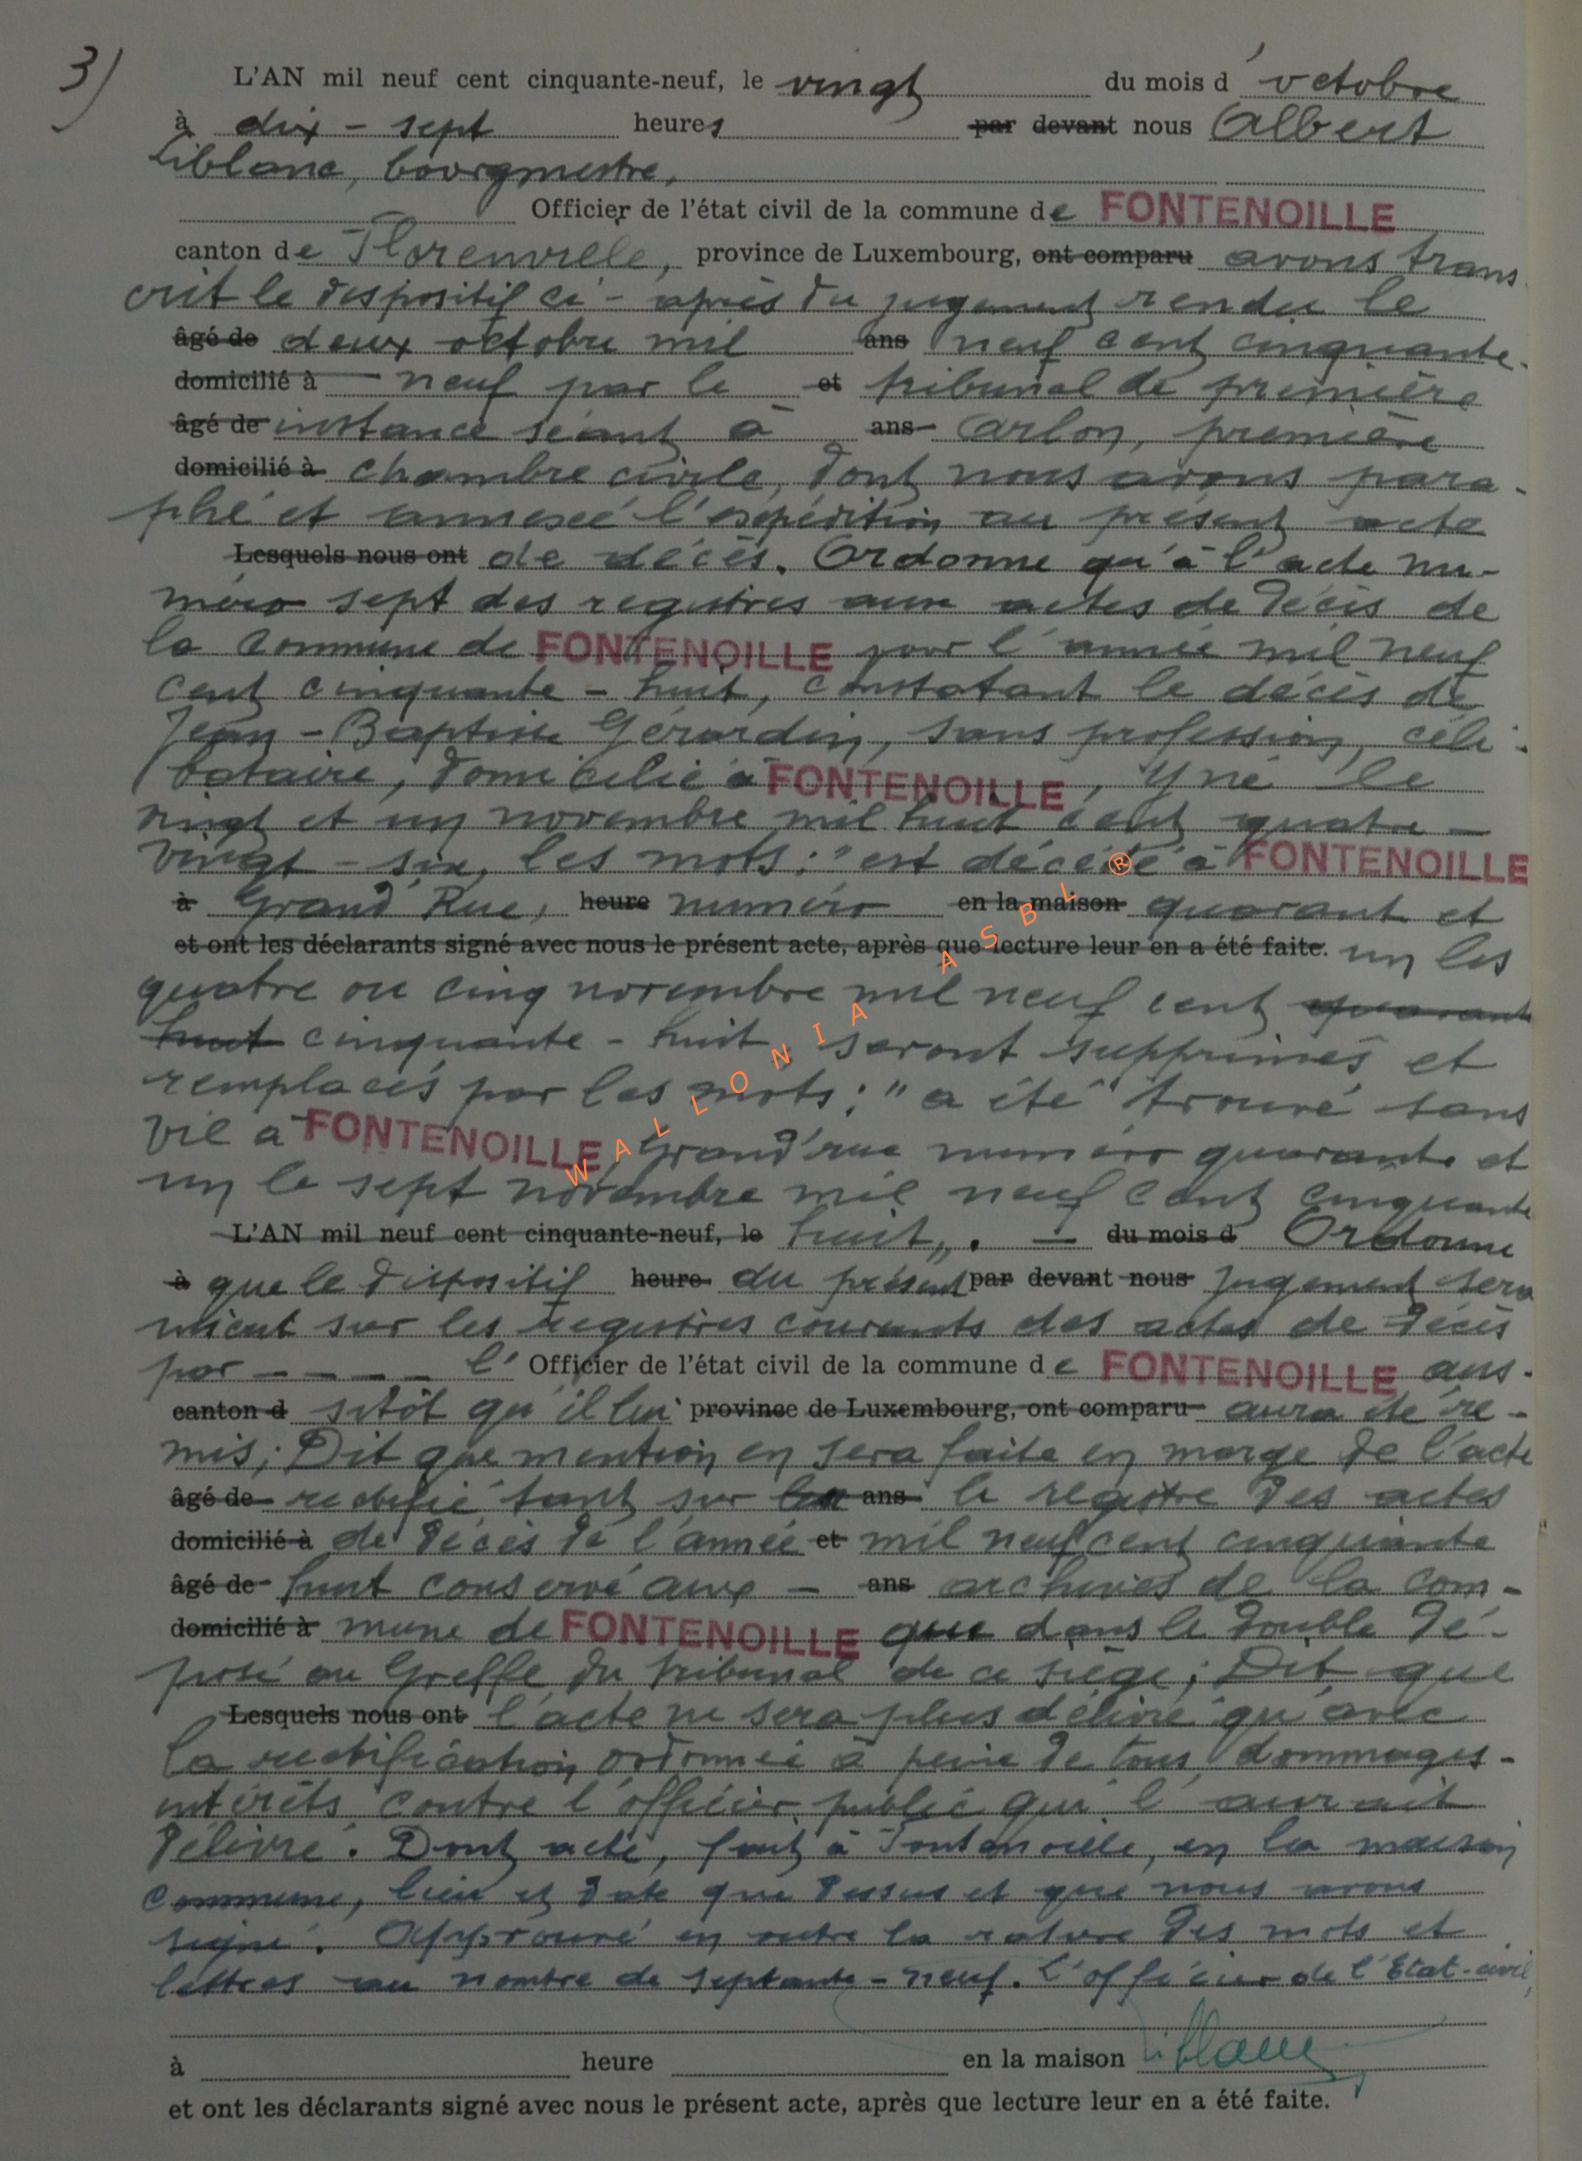 3)
L'AN mil neuf cent cinquante-neuf, le vingt du mois d'octobre
à dix-sept heures par devant nous Albert
Liblanc, bourgmestre,
Officier de l'état civil de la commune de FONTENOILLE
canton de Florenville, province de Luxembourg, ont comparu avons trans
crit le dispositif ci-après du jugement rendu le
âgé de deux octobre mil ans neuf cent cinquante-
domicilié à neuf par le et tribunal de première
âgé de instance séant à ans Arlon, première
domicilié à chambre civile, dont nous avons para-
phé et annexé l'expédition au présent acte
Lesquels nous ont de décès. Ordonne qu'à l'acte nu-
méro sept des registres aux actes de décès de
la commune de FONTENOILLE pour l'année mil neuf
cent cinquante-huit, constatant le décès de
Jean-Baptiste Gérardin, sans profession, céli-
bataire, domicilié à FONTENOILLE, y né le
vingt et un novembre mil huit cent quatre-
vingt-six, les mots: "est décédé à FONTENOILLE
à Grand'Rue, heure numéro en la maison quarant et
et ont les déclarants signé avec nous le présent acte, après que lecture leur en a été faite. un les
quatre ou cinq novembre mil neuf cent quarant
huit cinquante-huit, seront supprimés et
remplacés par les mots: "a été trouvé sans
vie à FONTENOILLE, Grand'rue numéro quarante et
un le sept novembre mil neuf cent cinquante
L'AN mil neuf cent cinquante-neuf, le huit". — du mois d Ordonne
à que le dispositif heure du présent par devant nous jugement sera
inscrit sur les registres courants des actes de décès
par - - - - l'Officier de l'état civil de la commune de FONTENOILLE aus-
canton d sitôt qu'il lui province de Luxembourg, ont comparu aura été re-
mis; Dit que mention en sera faite en marge de l'acte
âgé de rectifié tant sur ans le registre des actes
domicilié à de décès de l'année et mil neuf cent cinquante
âgé de huit conservé aux - ans archives de la com-
domicilié à mune de FONTENOILLE que dans le double dé-
posé au Greffe du tribunal de ce siège; Dit que
Lesquels nous ont l'acte ne sera plus délivré qu'avec
la rectification ordonnée à peine de tous dommages-
intérêts contre l'officier public qui l'aurait
délivré. Dont acte, fait à Fontenoille, en la maison
commune, lieu et date que dessus et que nous avons
signé. Approuvé en outre la rature des mots et
lettres au nombre de septante-neuf. L'officier de l'Etat-civil,
à heure en la maison Liblanc
et ont les déclarants signé avec nous le présent acte, après que lecture leur en a été faite.
WALLONIA ASBL ®